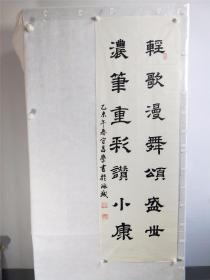 輕歌漫舞頌盛世
濃筆重彩讚小康
乙未年春官昌學書於流城